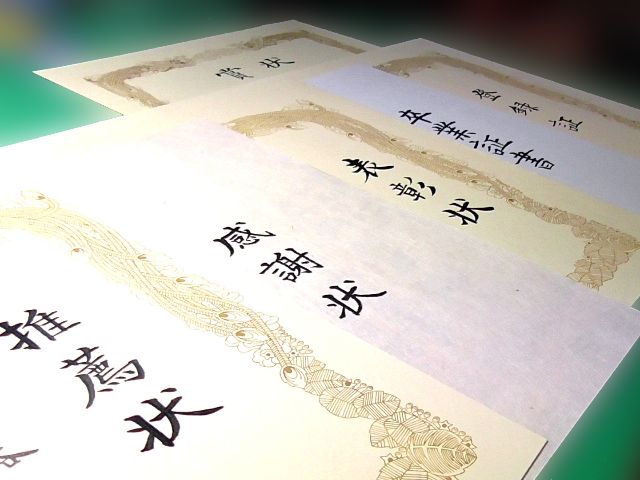 賞状
登録証
卒業証書
表彰状
感謝状
推薦状